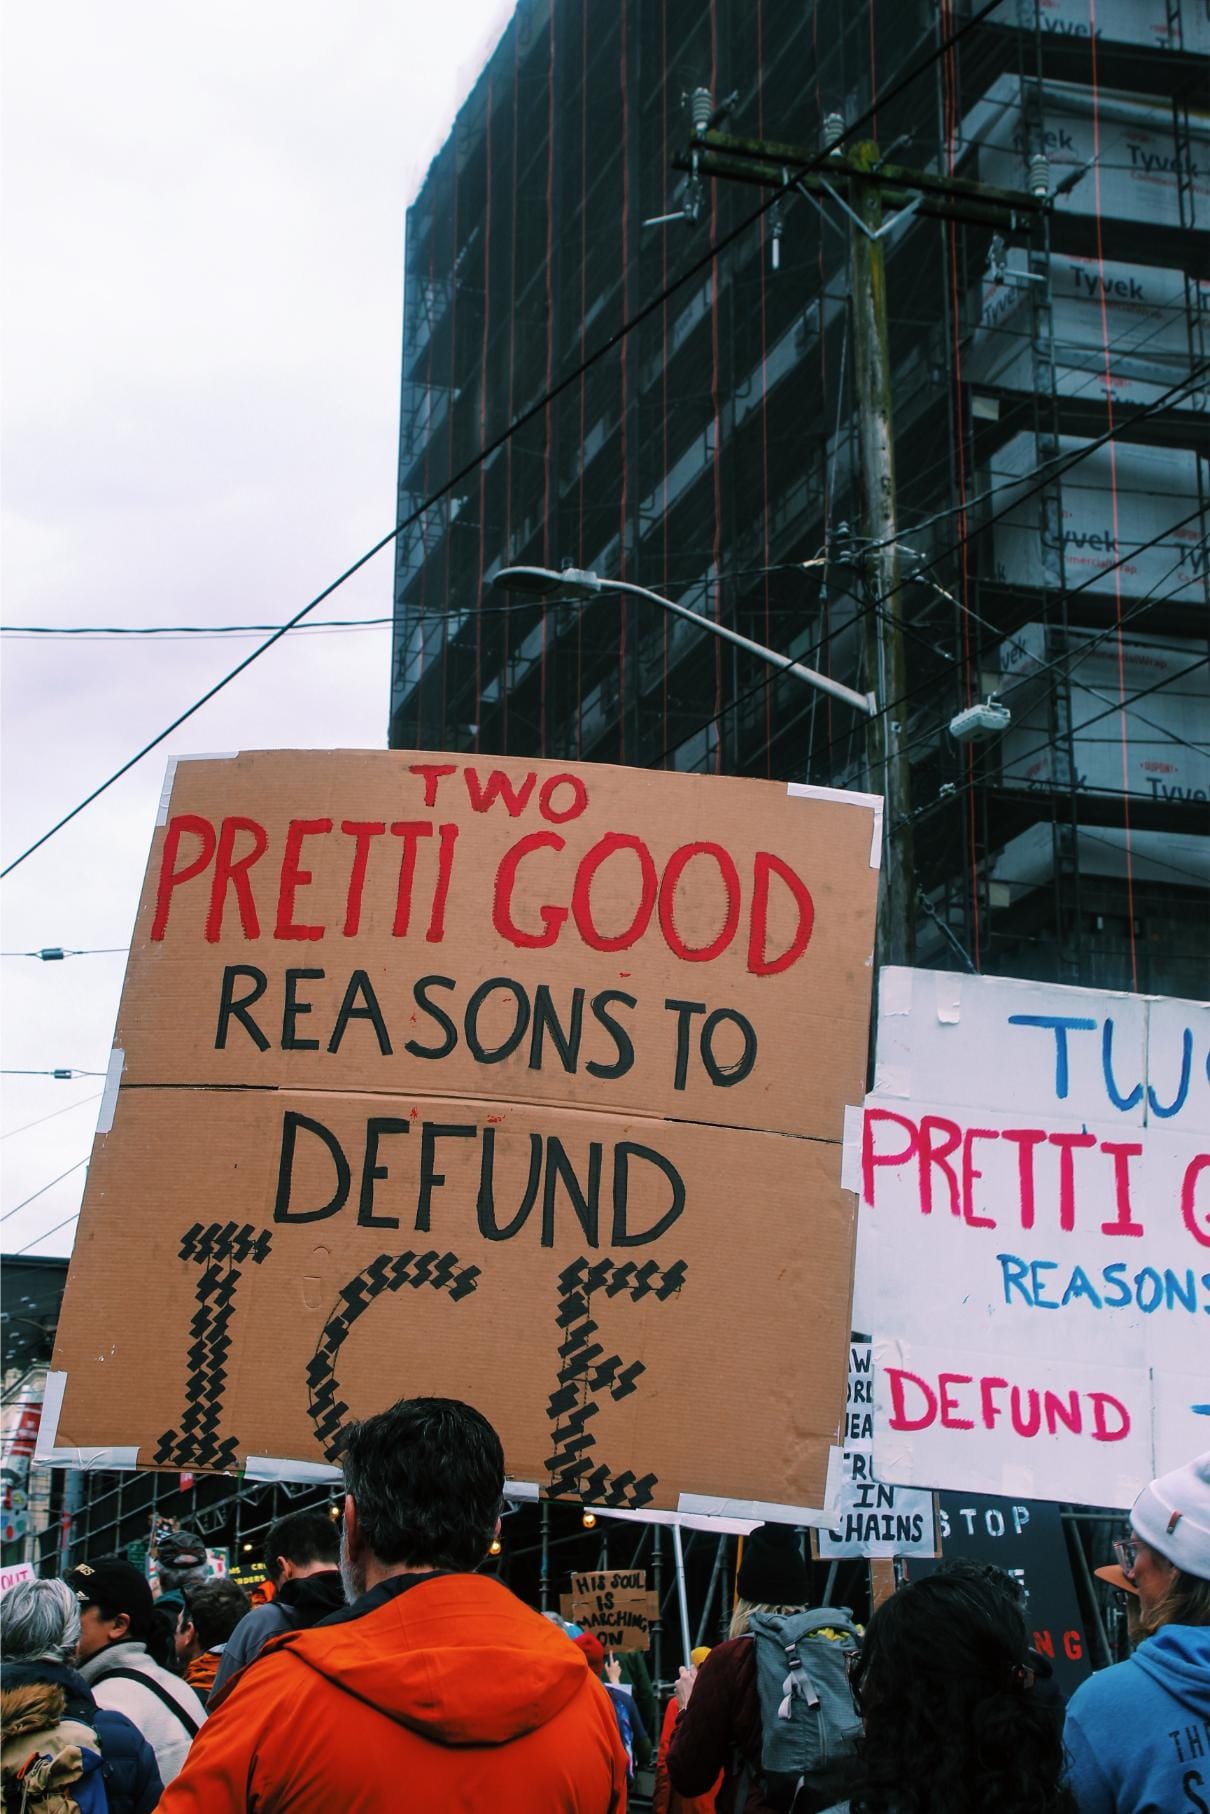 TWO
PRETTI GOOD
REASONS TO
DEFUND
ICE
PRETTI
REASONS
DEFUND
IN
CHAINS
STOP
HIS SOUL
IS
MARCHING
ON
OUT
Tyvek
Tyvek
Tyvek
Tyvek